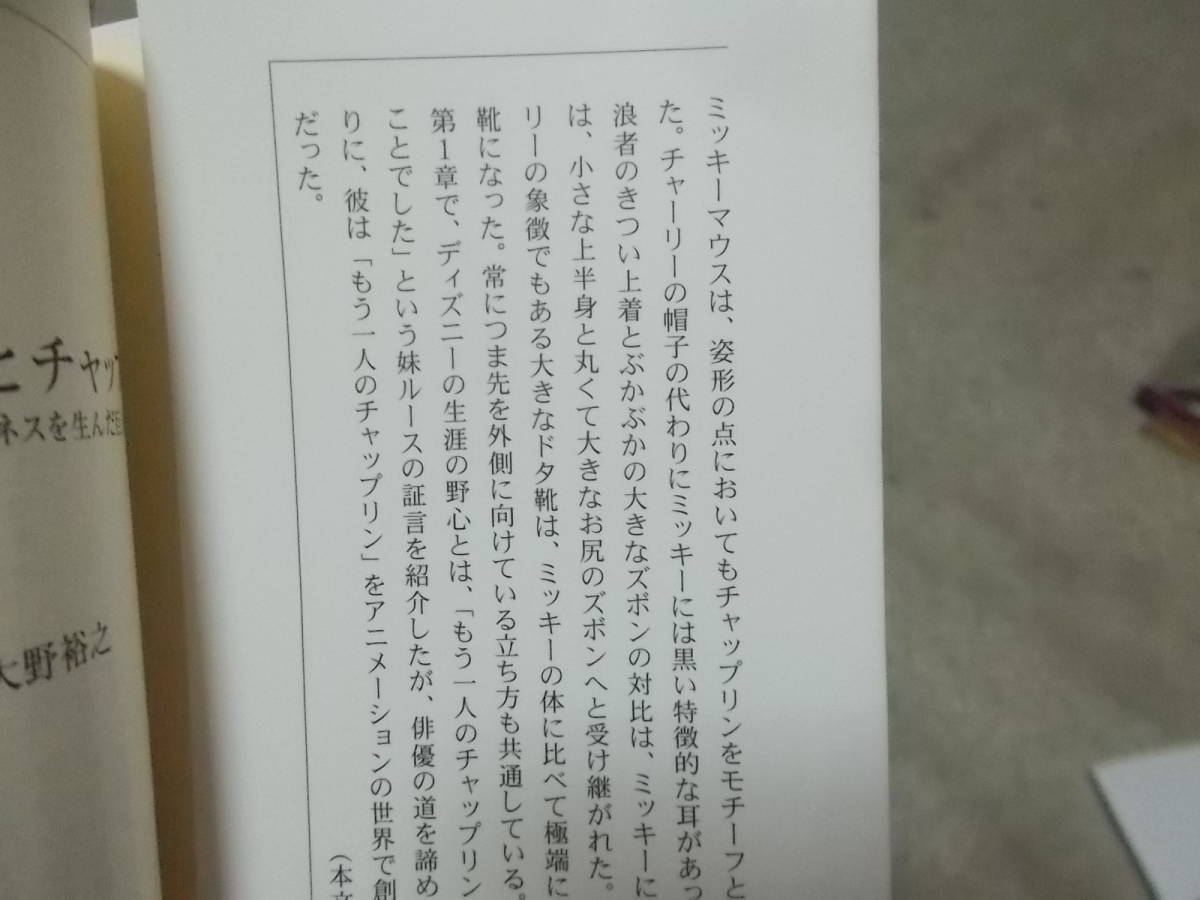 ミッキーマウスは、姿形の点においてもチャップリンをモチーフと
た。チャーリーの帽子の代わりにミッキーには黒い特徴的な耳があっ
浪者のきつい上着とぶかぶかの大きなズボンの対比は、ミッキーに
は、小さな上半身と丸くて大きなお尻のズボンへと受け継がれた。
リーの象徴でもある大きなドタ靴は、ミッキーの体に比べて極端に
靴になった。常につま先を外側に向けている立ち方も共通している。
第1章で、ディズニーの生涯の野心とは、「もう一人のチャップリン
ことでした」という妹ルースの証言を紹介したが、俳優の道を諦め
りに、彼は「もう一人のチャップリン」をアニメーションの世界で創
だった。
（本文
とチャップ
ネスを生んだ巨
大野裕之